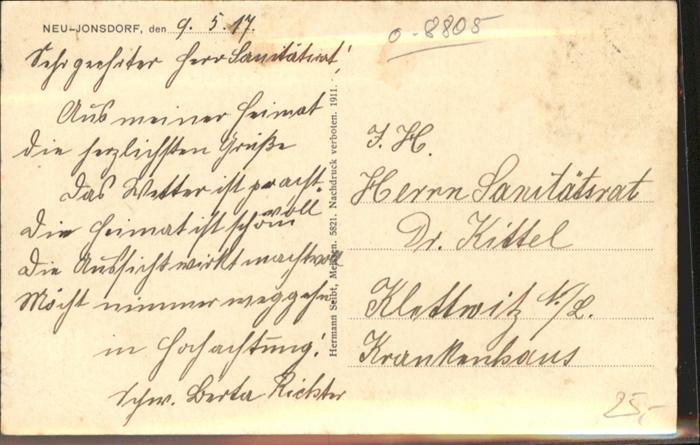 NEU-JONSDORF, den 9. 5. 17.
Sehr geehrter Herr Sanitätsrat!
Aus meiner Heimat
die herzlichsten Grüße
Das Wetter ist pracht-
voll
Die Heimat ist schön
Die Aussicht wirkt machtvoll
Möcht nimmer weggehn
in Hochachtung!
Schw. Berta Richter
Hermann Seibt, Meißen. 5821. Nachdruck verboten. 1911.
0-8805
Herrn Sanitätsrat
Dr. Kittel
Klettwitz N/L.
Krankenhaus
25,-